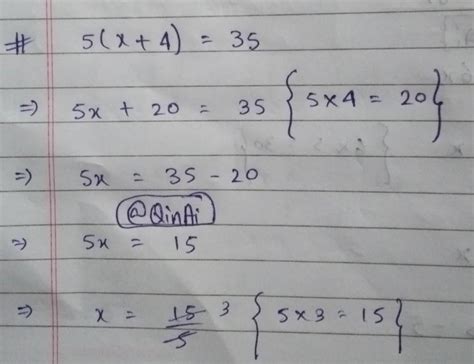 # 5(x + 4) = 35
⇒ 5x + 20 = 35 { 5×4 = 20 }
⇒ 5x = 35 - 20
@QinAi
⇒ 5x = 15
⇒ x = 15/5 3 { 5×3 = 15 }